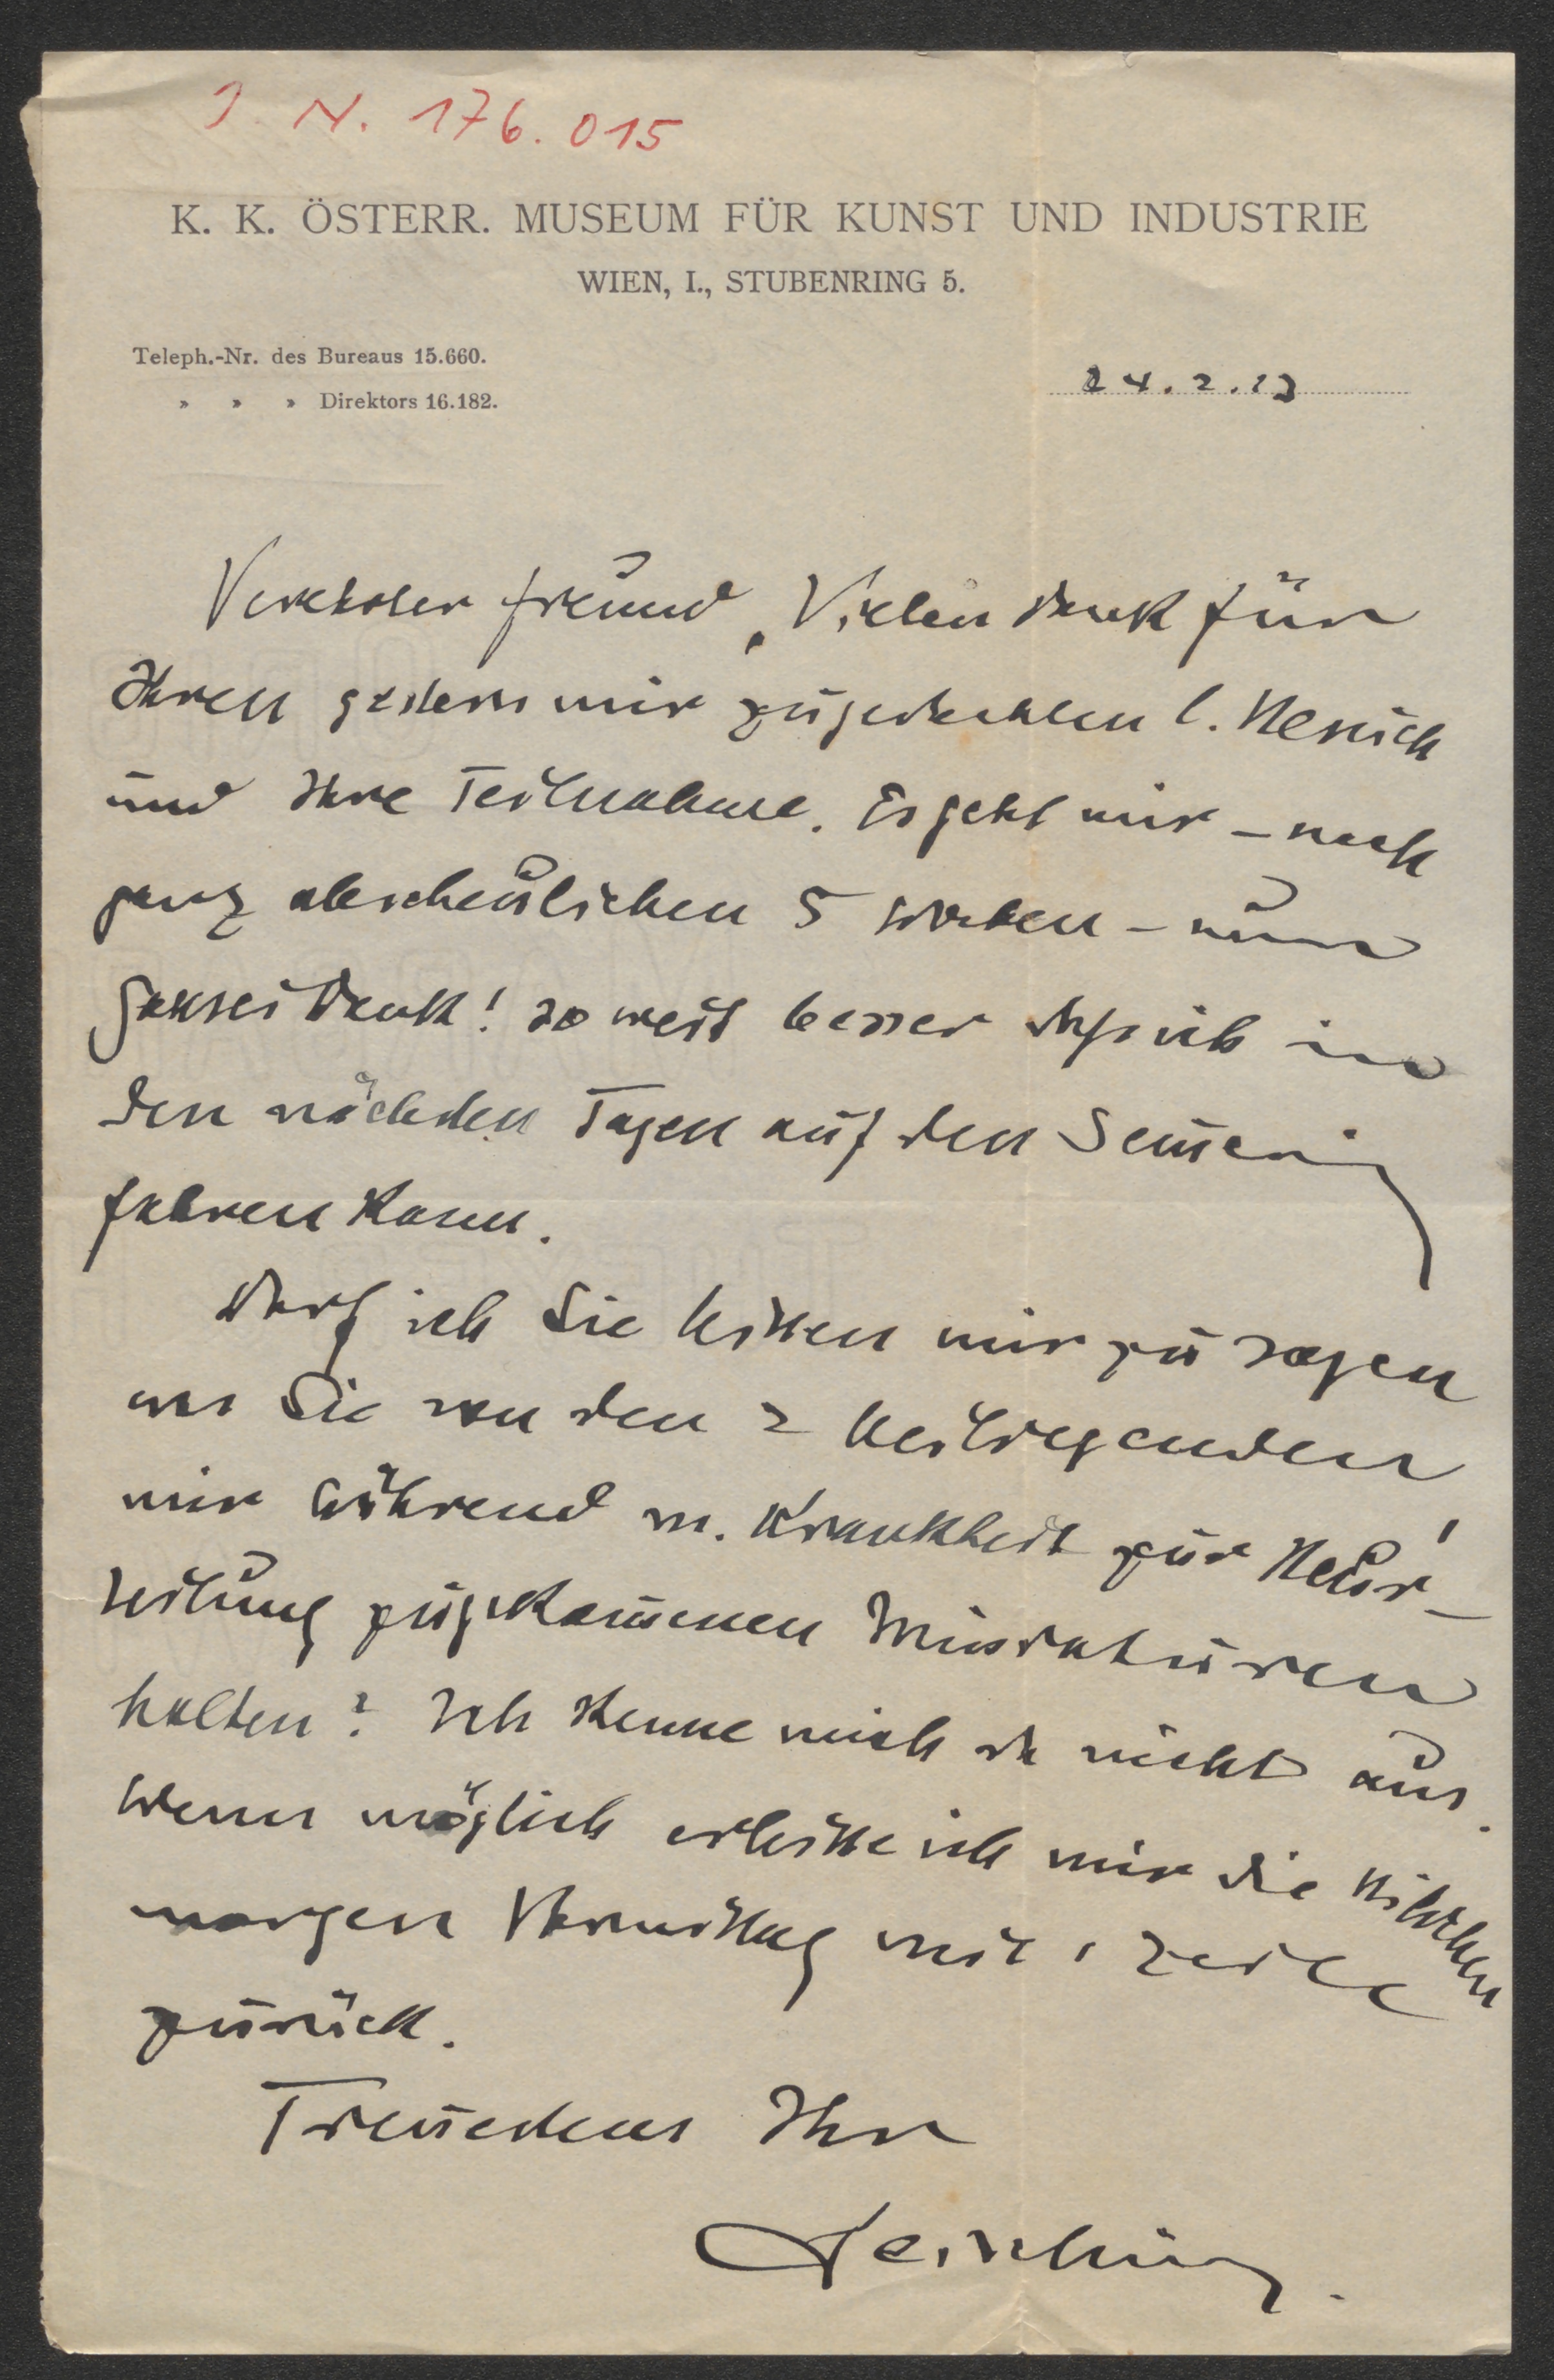 J. N. 176.015
K. K. ÖSTERR. MUSEUM FÜR KUNST UND INDUSTRIE
WIEN, I., STUBENRING 5.
Teleph.-Nr. des Bureaus 15.660.
» » » Direktors 16.182.
24.2.13
Verehrter Freund, Vielen Dank für
Ihren gestern mir zugedachten l. Besuch
und Ihre Teilnahme. Es geht mir – nach
ganz abscheulichen 5 Wochen – nun
Gottseidank! so weit besser daß ich in
den nächsten Tagen auf den Sem̄ering
fahren kann.
Darf ich Sie bitten mir zu sagen
was Sie von den 2 beiliegenden
mir während m. Krankheit zur Beur-
teilung zugekom̄enen Miniaturen
halten? Ich kenne mich da nicht aus.
Wenn möglich erbitte ich mir die Bildchen
morgen Vormittag mit 1 Zeile
zurück.
Treuestens Ihr
Leisching.